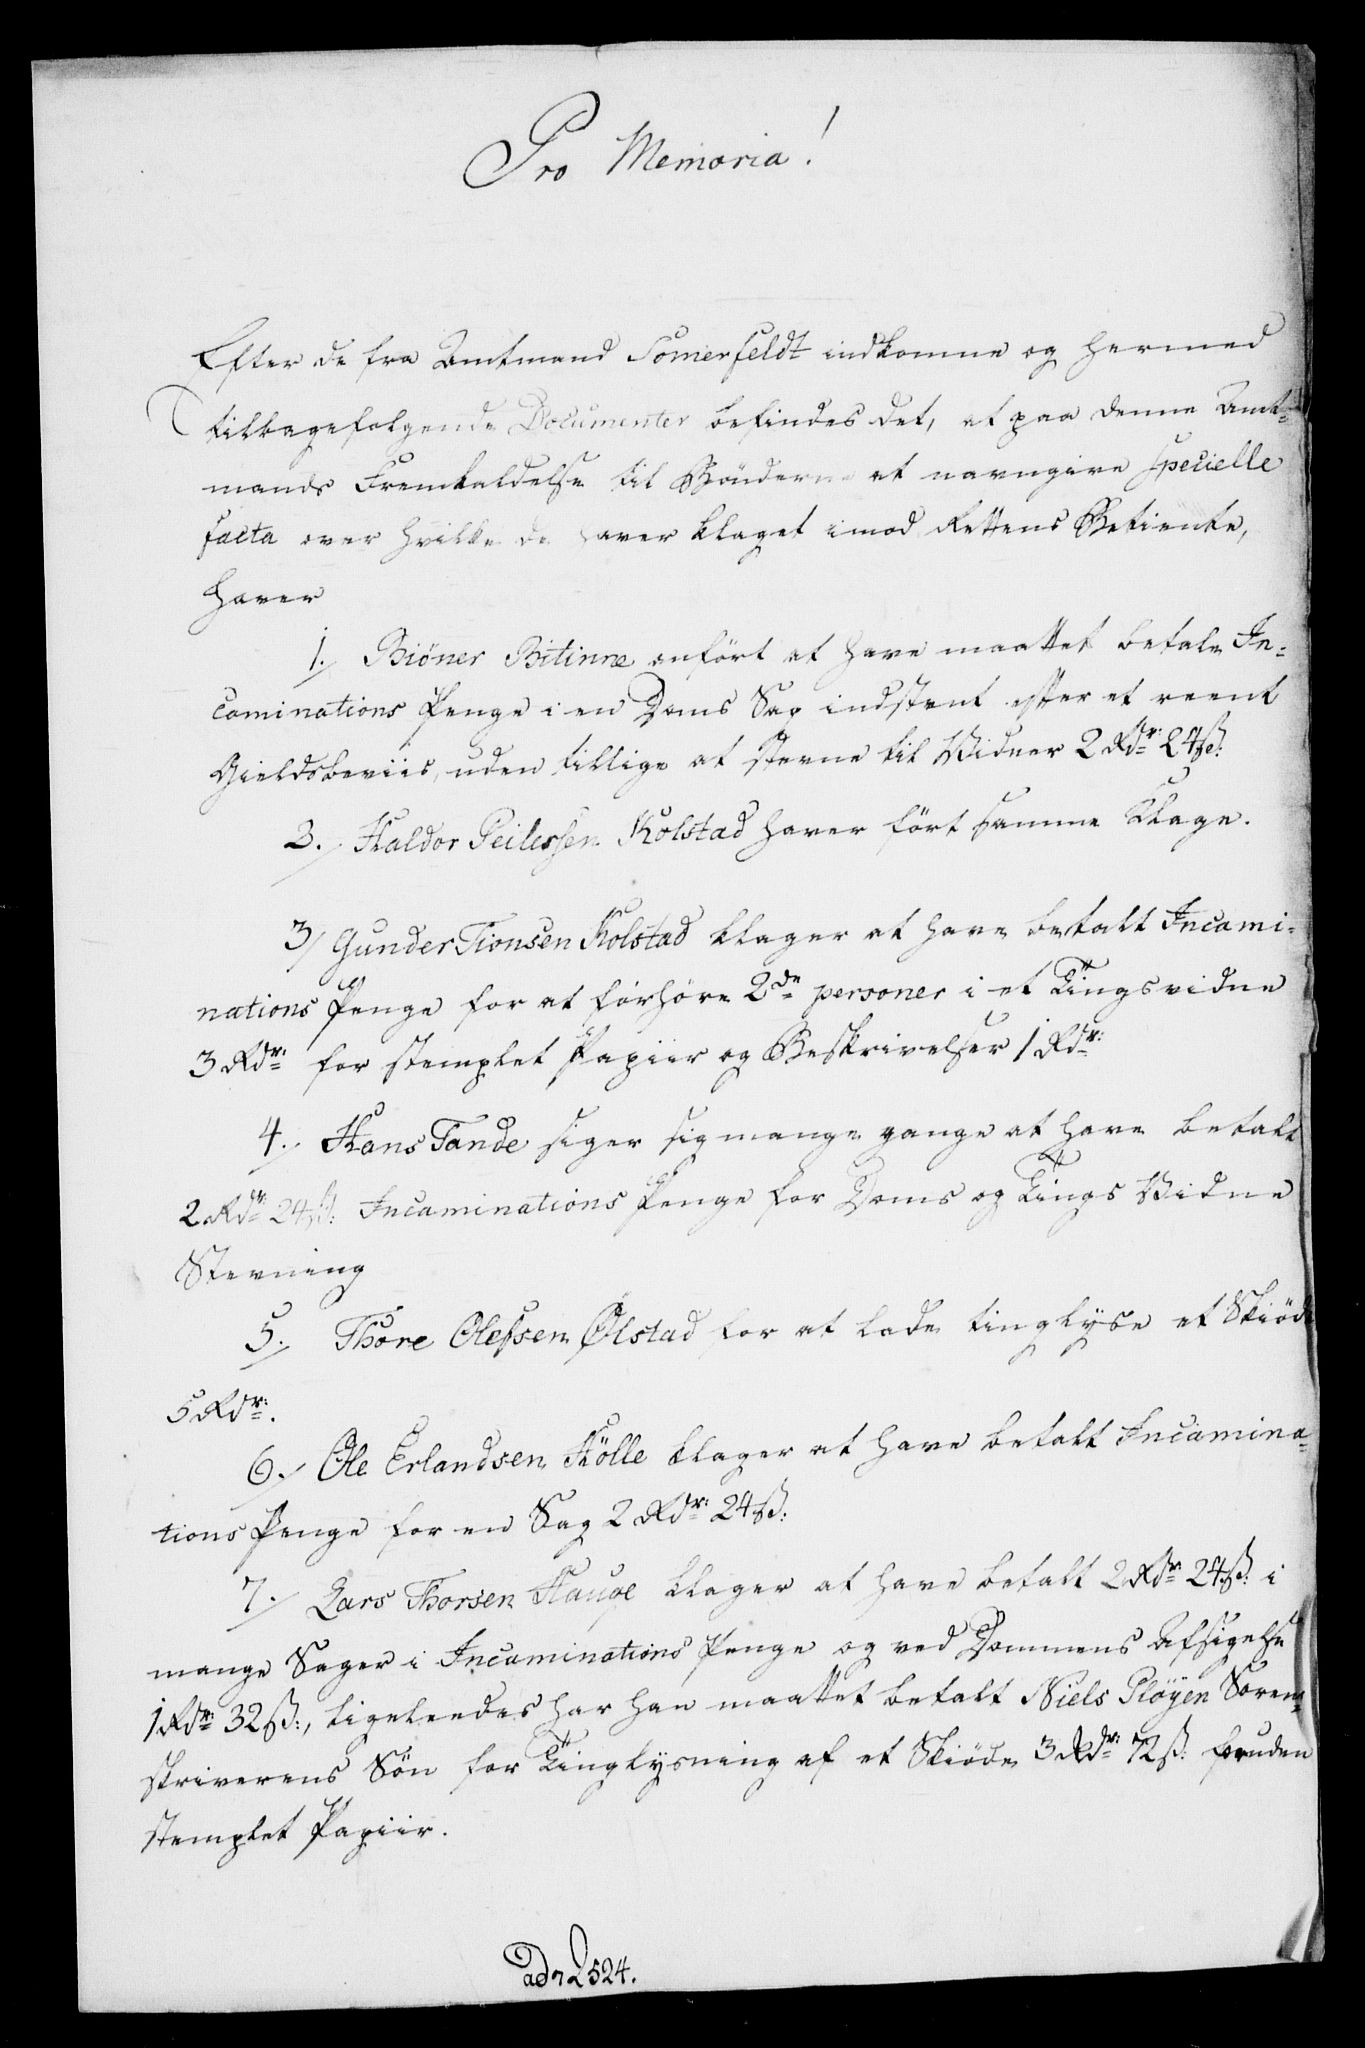 Pro Memoria!
Efter de fra Amtmand Somerfeldt indkomne og hermed
tilbagefølgende Documenter befindes det, at paa denne Amt-
mands Fremkaldelse til Bönderne at navngive specielle
facta over hvilke de haver klaget imod Rettens Betiente,
haver
1. Biöner Bitinne anfört at have maattet betale In-
caminations Penge i en Doms Sag indstevnt efter et reent
Gieldsbeviis, uden tillige at stevne til Vidner 2 Rdr: 24 ß:
2. Haldor Peilessen Kolstad haver fört samme Klage.
3/ Gunder Tionsen Kolstad klager at have betalt Incami-
nations Penge for at forhöre 2de personer i et Tingsvidne
3 Rdr: for stemplet Papiir og Beskrivelser 1 Rdr:
4. Hans Tande siger sig mange gange at have betalt
2 Rdr 24 ß: Incaminations Penge for Doms og Tings Vidne
Stevning
5. Thore Olefsen Ølstad for at lade tinglyse et Skiöde
5 Rdr:.
6. Ole Erlandsen Hölle klager at have betalt Incamina-
tions Penge for en Sag 2 Rdr: 24 ß:
7. Lars Thorsen Hauge klager at have betalt 2 Rdr: 24 ß: i
mange Sager i Incaminations Penge og ved Dommens Afsigelse
1 Rdr: 32 ß:, ligeleedes har han maattet betalt Niels Plöyen Soren-
skriverens Sön for Tinglysning af et Skiöde 3 Rdr: 72 ß: foruden
stemplet Papiir.
ad 2524.